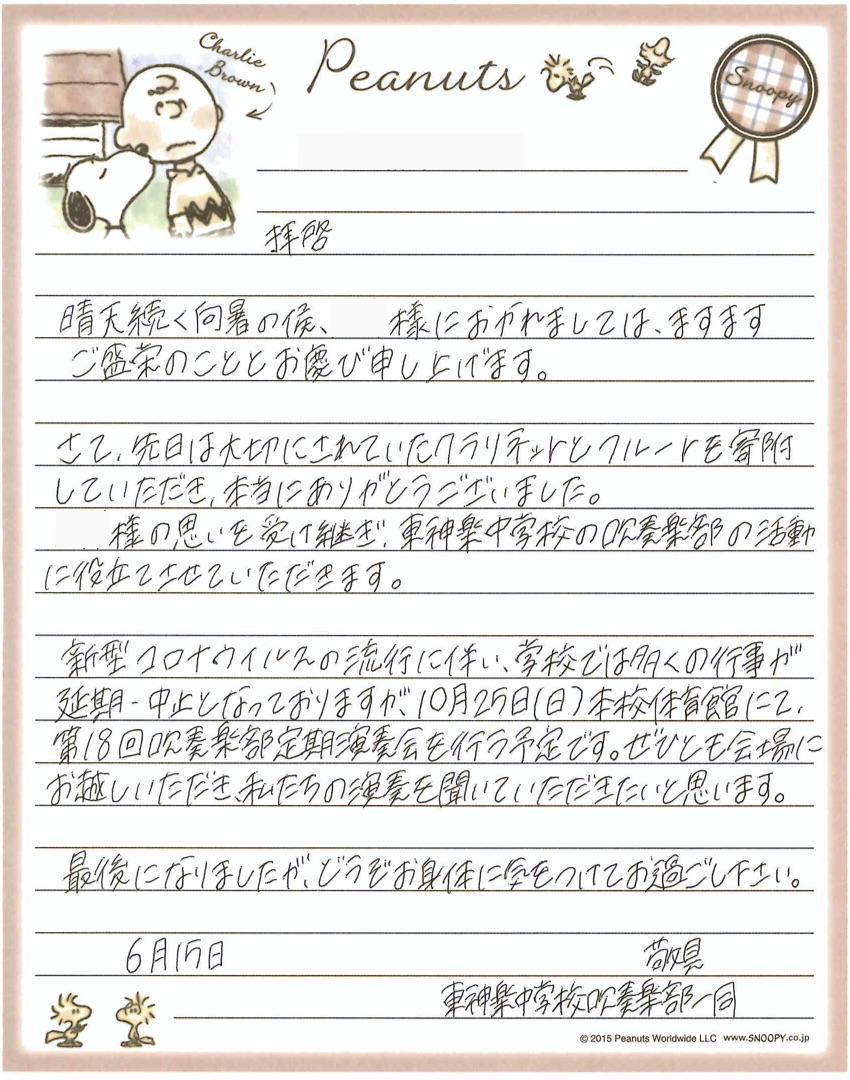 Charlie Brown
Peanuts
Snoopy
拝啓
晴天続く向暑の候、 様におかれましては、ますます
ご盛栄のこととお慶び申し上げます。
さて、先日は大切にされていたクラリネットとフルートを寄附
していただき、本当にありがとうございました。
様の思いを受け継ぎ、東神楽中学校の吹奏楽部の活動
に役立てさせていただきます。
新型コロナウイルスの流行に伴い、学校では多くの行事が
延期・中止となっておりますが、10月25日(日)本校体育館にて、
第18回吹奏楽部定期演奏会を行う予定です。ぜひとも会場に
お越しいただき、私たちの演奏を聞いていただきたいと思います。
最後になりましたが、どうぞお身体に気をつけてお過ごし下さい。
6月15日
敬具
東神楽中学校吹奏楽部一同
© 2015 Peanuts Worldwide LLC www.SNOOPY.co.jp